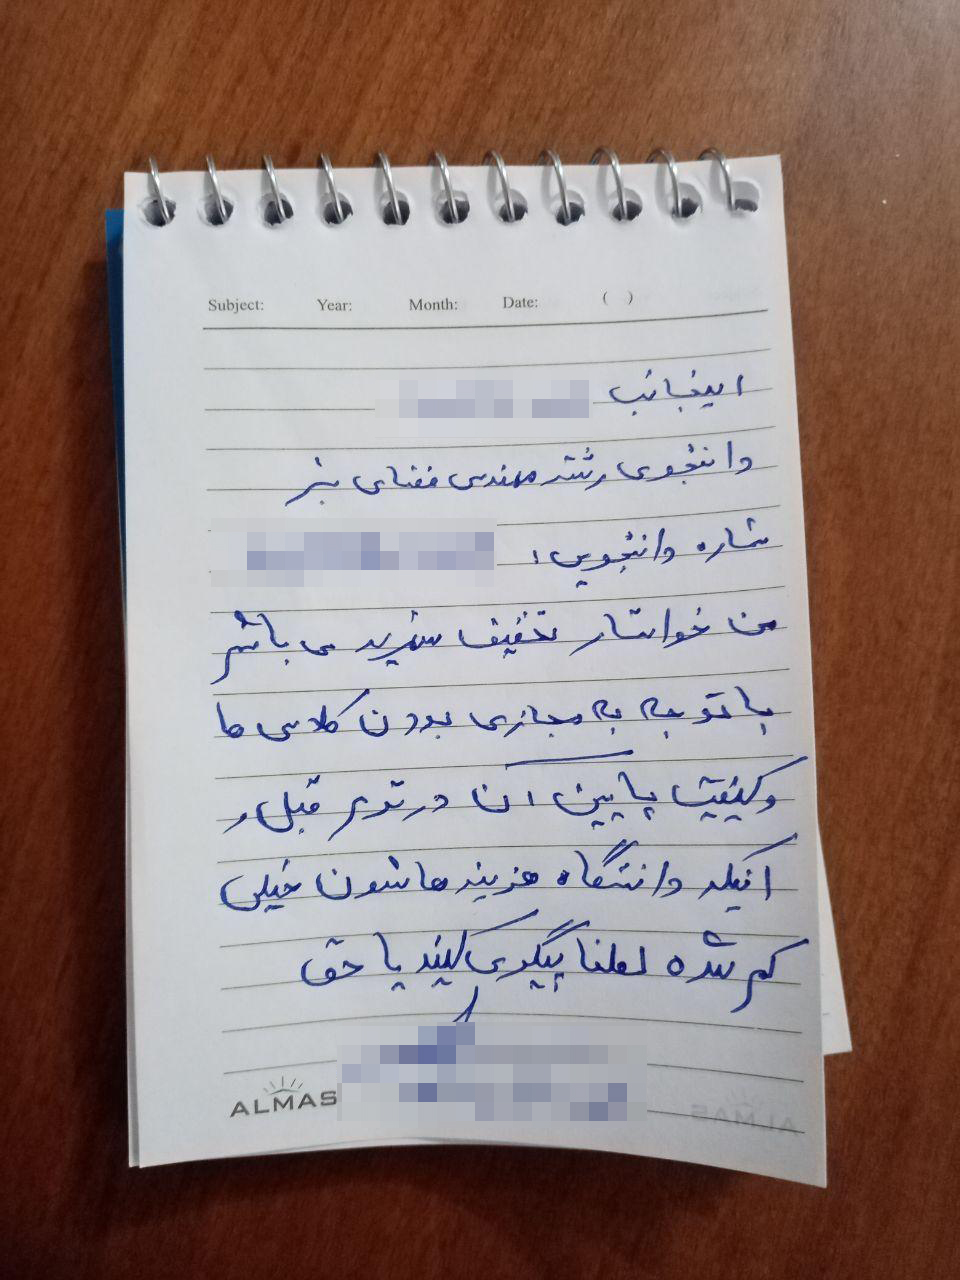 Subject: Year: Month: Date: ( )
اینجانب
دانشجوی رشته مهندسی فضای سبز
شماره دانشجویی:
من خواستار تخفیف شهریه می باشم
با توجه به مجازی بودن کلاس ها
و کیفیت پایین آن در ترم قبل و
اینکه دانشگاه هزینه هاشون خیلی
کم شده لطفا پیگیری کنید یا حق
ALMAS